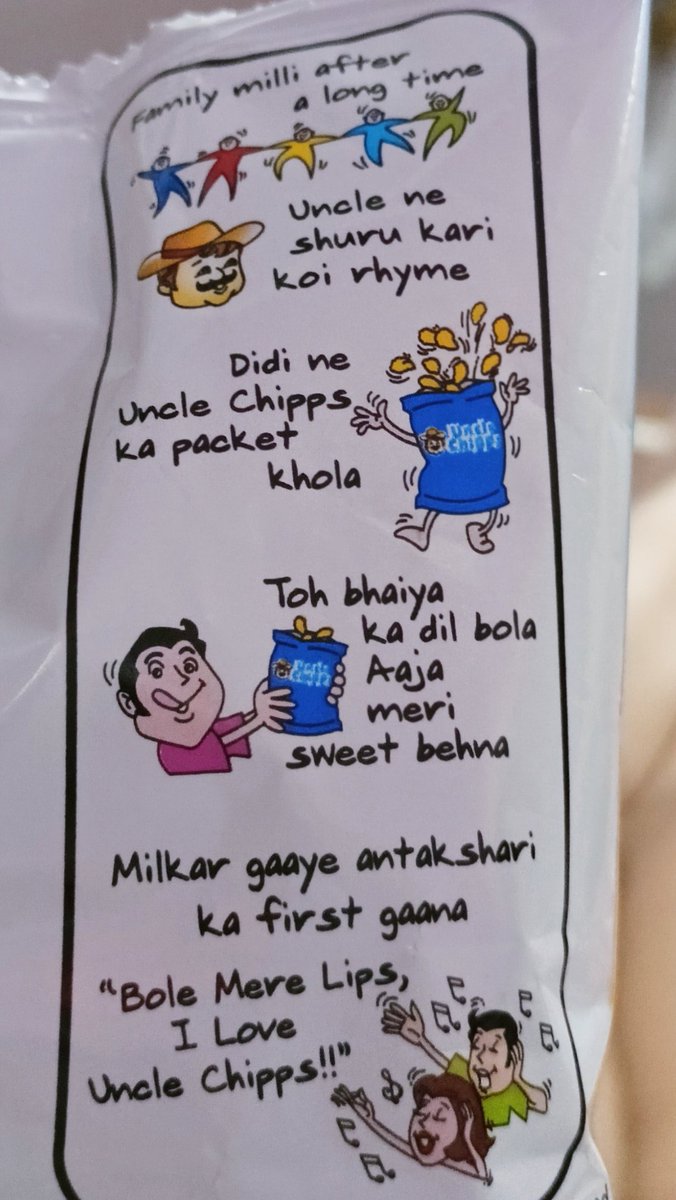 Family milli after
a long time
Uncle ne
shuru kari
koi rhyme
Didi ne
Uncle Chipps
ka packet
khola
Uncle
Chipps
Toh bhaiya
ka dil bola
Aaja
meri
sweet behna
Uncle
Chipps
Milkar gaaye antakshari
ka first gaana
"Bole Mere Lips,
I Love
Uncle Chipps!!"